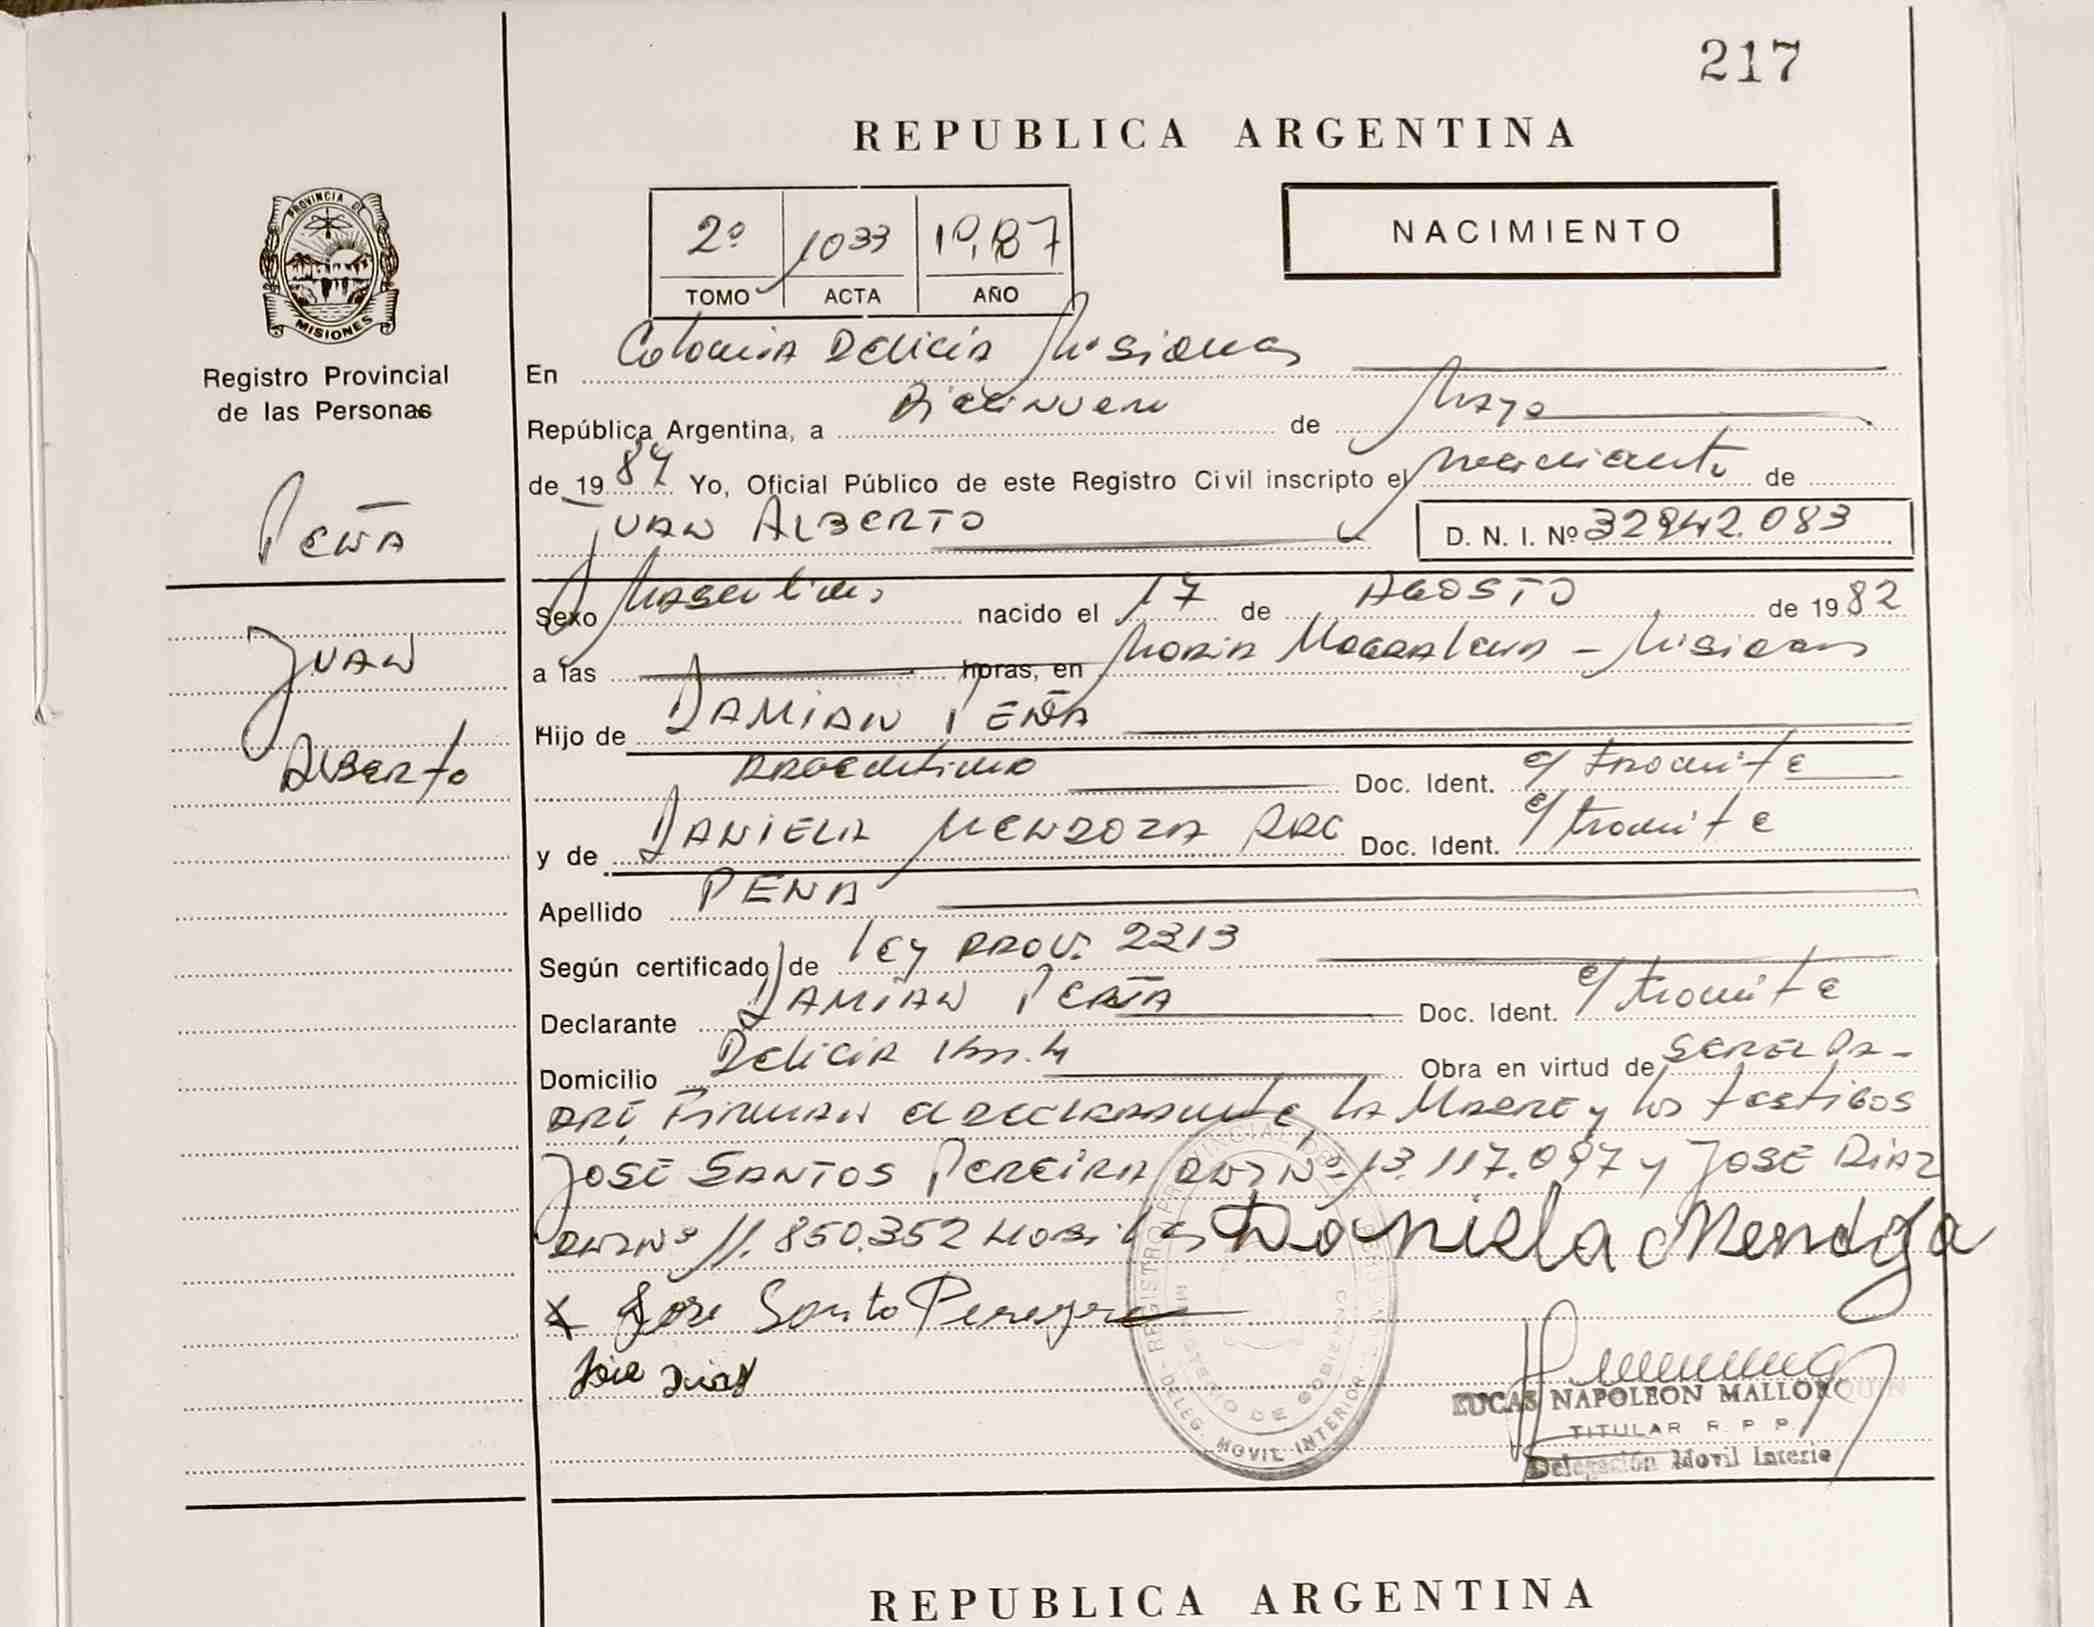 217
REPUBLICA ARGENTINA
PROVINCIA DE
MISIONES
Registro Provincial
de las Personas
2º 1033 1987
TOMO ACTA AÑO
NACIMIENTO
En Colonia Delicia Misiones
República Argentina, a Diecinueve de Mayo
de 1987 Yo, Oficial Público de este Registro Civil inscripto el nacimiento de
JUAN ALBERTO D. N. I. Nº 32942.083
PEÑA
JUAN
Alberto
Sexo Masculino nacido el 17 de AGOSTO de 1982
a las horas, en María Magdalena - Misiones
Hijo de DAMIAN PEÑA
Argentino Doc. Ident. e/ tramite
y de DANIELA MENDOZA ARG Doc. Ident. e/ tramite
Apellido PEÑA
Según certificado de ley PROV. 2213
Declarante DAMIAN PEÑA Doc. Ident. e/ tramite
Domicilio Delicia Km. 4 Obra en virtud de SER EL PA-
DRE, Firman el declarante, la MADRE y los testigos
JOSÉ SANTOS PEREIRA DNI Nº 13.117.097 y JOSE DIAZ
DNI Nº 11.850.352 Daniela Mendoza
x Jose Santo Pereyra
Jose Diaz
REGISTRO PROVINCIAL DE
MINISTERIO DE GOBIERNO
DELEG. MOVIL INTERIOR
LUCAS NAPOLEON MALLORQUIN
TITULAR R. P. P.
Delegación Movil Interio
REPUBLICA ARGENTINA